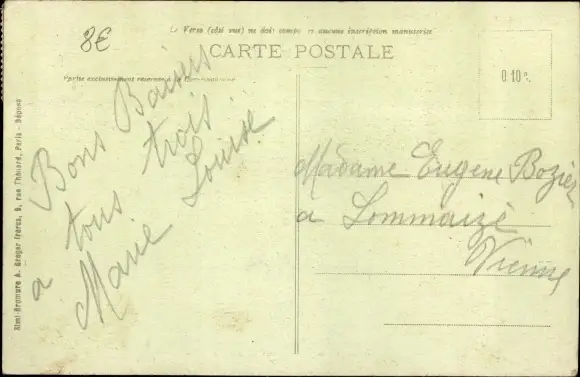 8€
Le Verso (côté vue) ne doit comporter aucune inscription manuscrite
CARTE POSTALE
Partie exclusivement réservée à la Correspondance
0.10 c.
Bons Baisers
a tous trois
Marie Louise
Madame Eugene Bozier
a Lommaizé
Vienne
Simi-Bromure A. Breger frères, 9, rue Thénard, Paris - Déposé